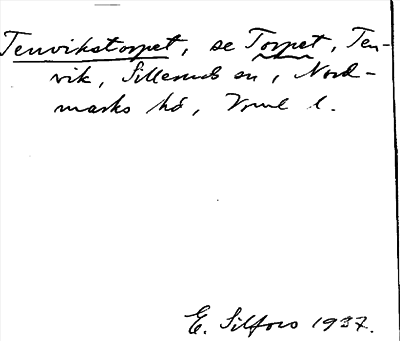 Tenvikstorpet, se Torpet, Ten-
vik, Sillerud sn, Nord-
marks hd, Vrml l.
E. Silfors 1937.